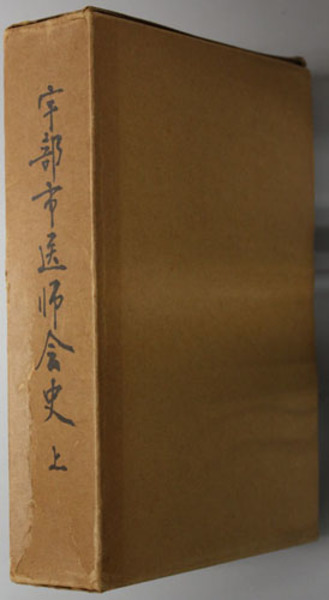 宇部市医师会史 上